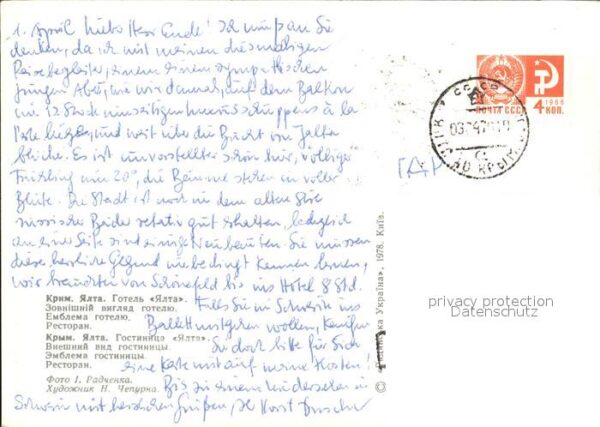 1. April Liebe Herr Ende! Ich muß an Sie
denken, da ich mit meinen diesmaligen
Reisebegleiter, einem sympathischen
jungen, wie wir damals, auf dem Balkon
im 12 Stock à la
und weit über die Bucht von Jalta
blicke. Es ist unvorstellbar schön hier, völliger
Frühling um 20°, die Bäume stehen in voller
Blüte. Die Stadt ist noch in dem alten Stil
russischer Bäder relativ gut erhalten, lediglich
an einer Seite sind einige Neubauten. Sie müssen
diese herrliche Gegend unbedingt kennen lernen,
wir brauchten von Schönefeld bis ins Hotel 8 Std.
Falls Sie in Schwerin ins
Ballett gehen wollen, kaufen
Sie doch bitte für Sich
eine Karte mit auf meine Kosten!
Bis zu einem Wiedersehen in
Schwerin mit herzlichen Grüßen, Ihr Horst
Крим. Ялта. Готель «Ялта».
Зовнішній вигляд готелю.
Емблема готелю.
Ресторан.
Крым. Ялта. Гостиница «Ялта».
Внешний вид гостиницы.
Эмблема гостиницы.
Ресторан.
Фото І. Радченка.
Художник Н. Чепурна.
Україна». 1978. Київ.
ПОЧТА СССР
1966
4 КОП.
СССР
privacy protection
Datenschutz